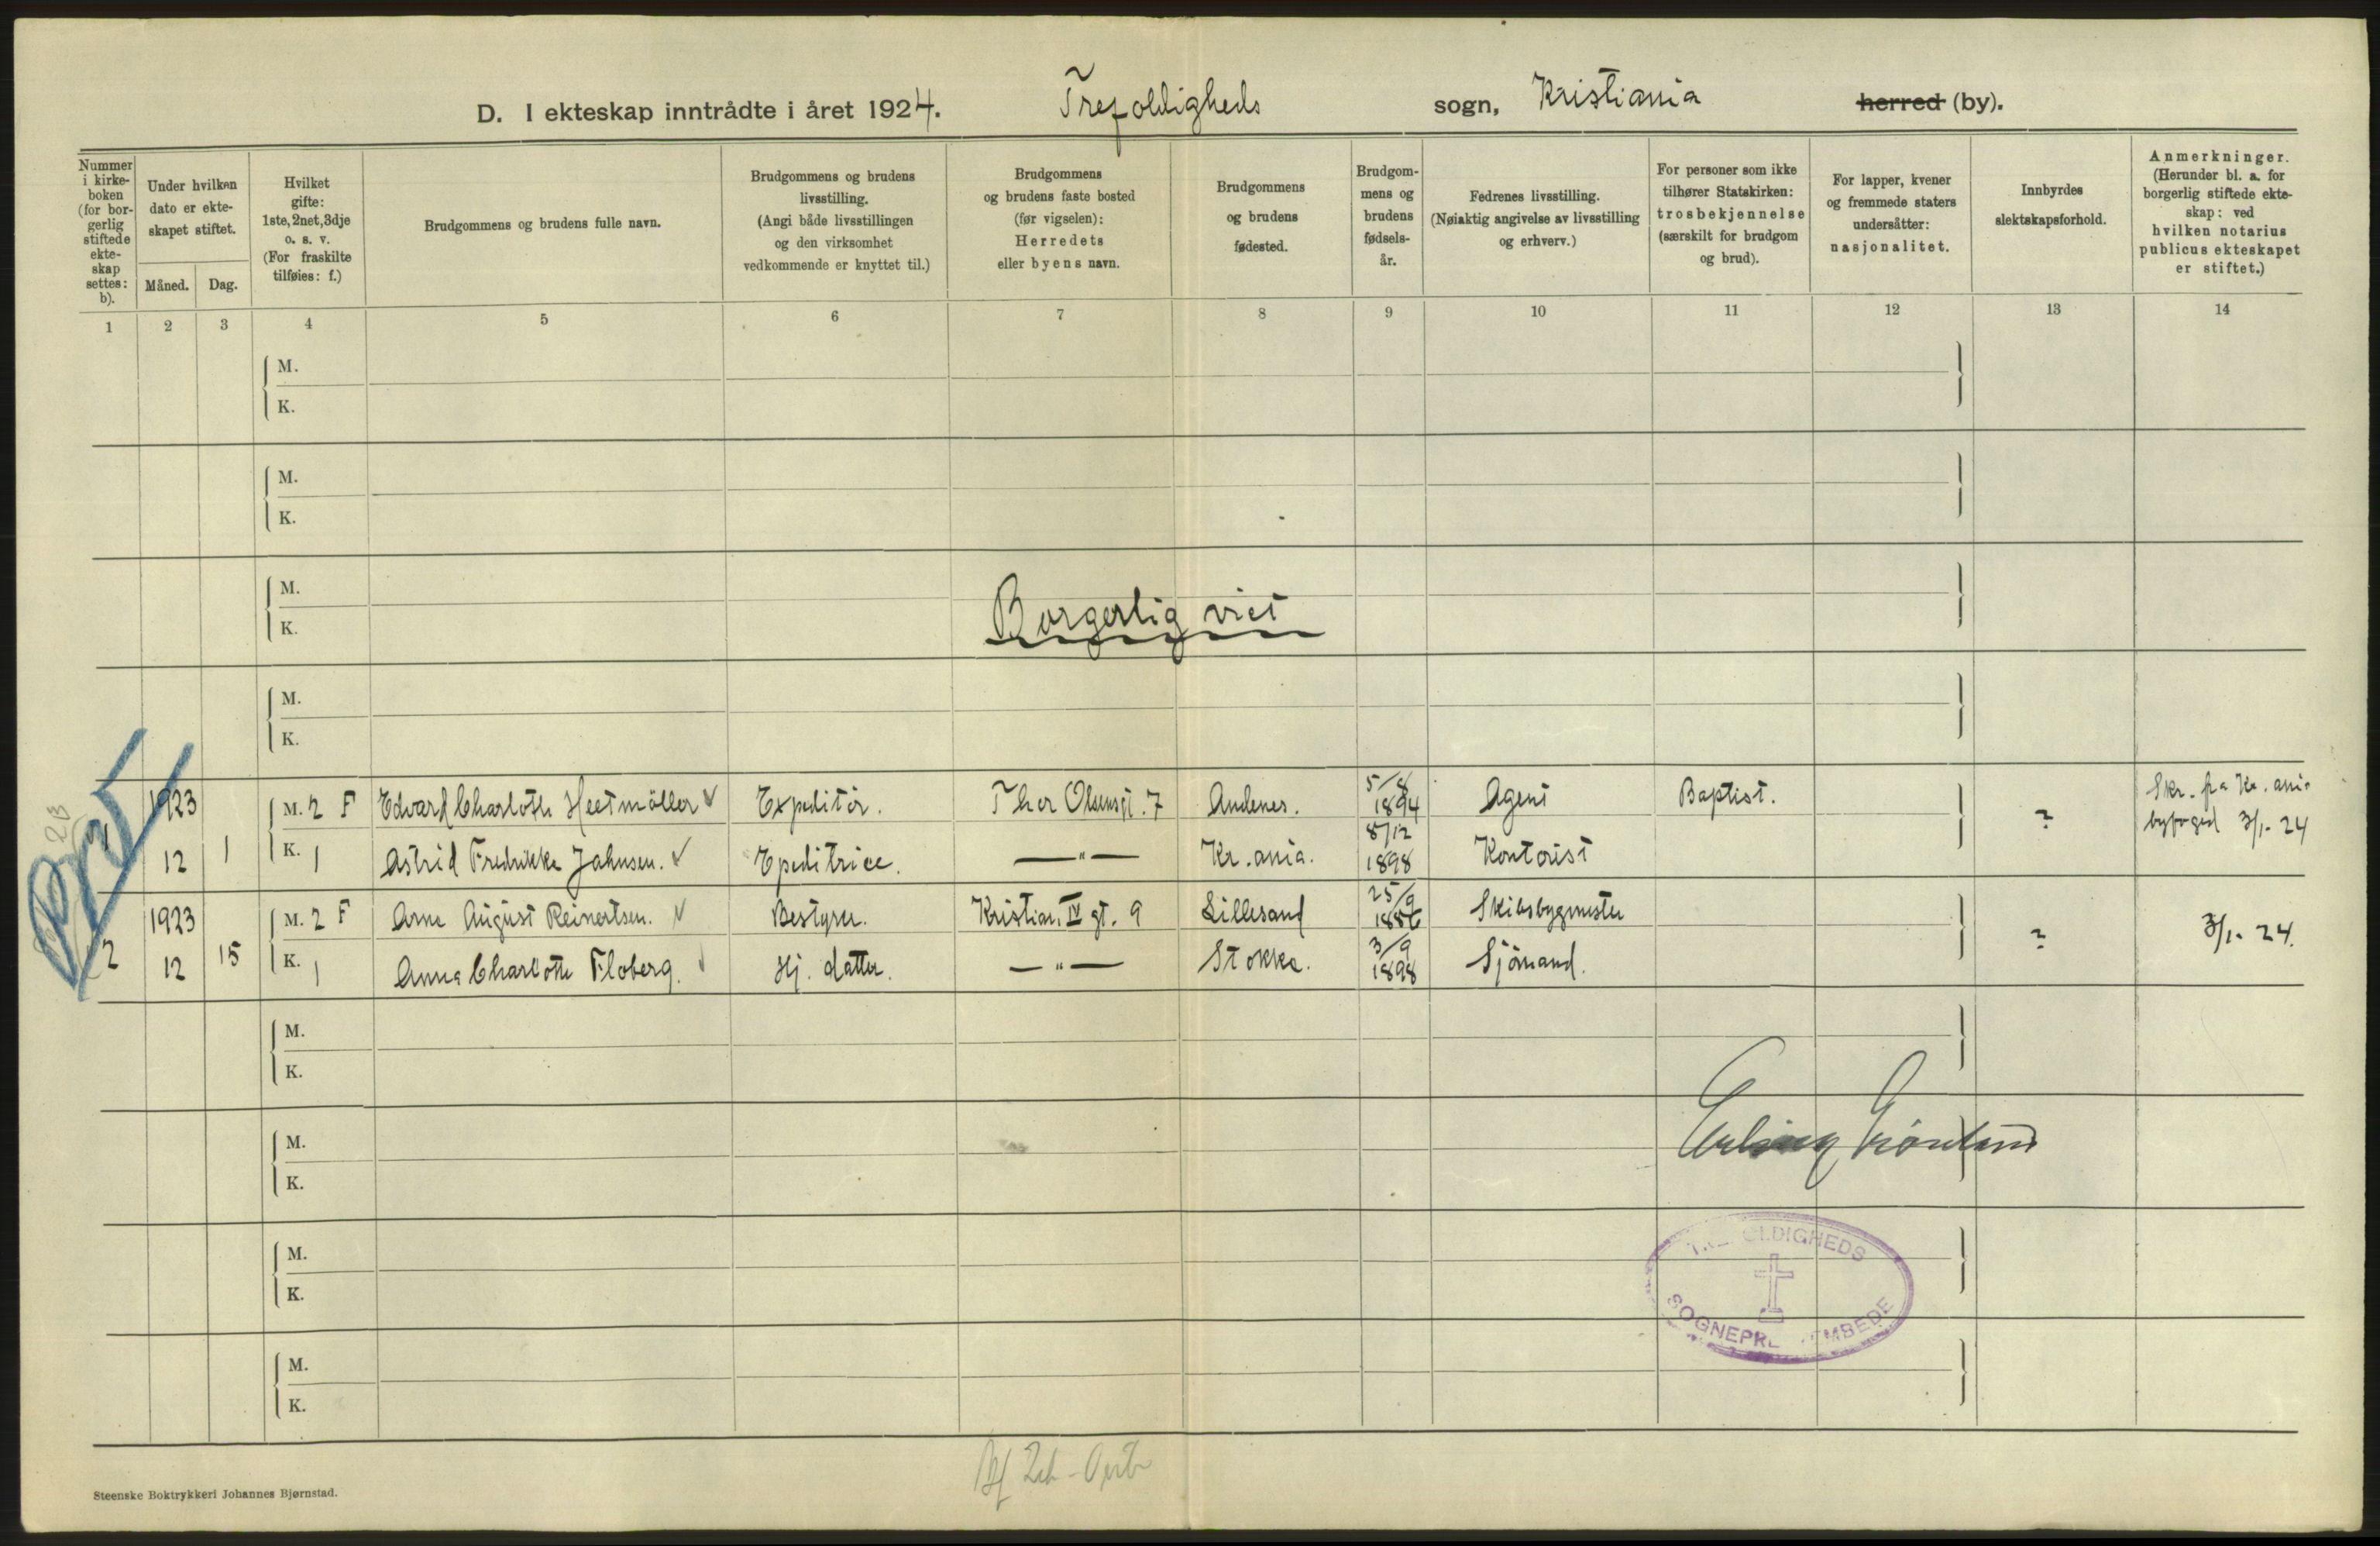 D. I ekteskap inntrådte i året 1924. Trefoldigheds sogn, Kristiania herred (by).
Nummer i kirke-boken (for bor-gerlig stiftede ekte-skap settes: b).
Under hvilken dato er ekte-skapet stiftet.
Måned. Dag.
Hvilket gifte: 1ste, 2net, 3dje o. s. v. (For fraskilte tilføies: f.)
Brudgommens og brudens fulle navn.
Brudgommens og brudens livsstilling. (Angi både livsstillingen og den virksomhet vedkommende er knyttet til.)
Brudgommens og brudens faste bosted (før vigselen): Herredets eller byens navn.
Brudgommens og brudens fødested.
Brudgom-mens og brudens fødsels-år.
Fedrenes livsstilling. (Nøiaktig angivelse av livsstilling og erhverv.)
For personer som ikke tilhører Statskirken: trosbekjennelse (særskilt for brudgom og brud).
For lapper, kvener og fremmede staters undersåtter: nasjonalitet.
Innbyrdes slektskapsforhold.
Anmerkninger. (Herunder bl. a. for borgerlig stiftede ekte-skap: ved hvilken notarius publicus ekteskapet er stiftet.)
1 2 3 4 5 6 7 8 9 10 11 12 13 14
M.
K.
M.
K.
M.
Borgerlig viet
K.
M.
K.
1923 M. 2 F Edvard Charlotte Heetmøller Expeditør. Thor Olsensgt. 7 Andenes. 5/8 1894 Agent Baptist. ? Skr. fra Kr.ania byfoged 3/1-24
1 12 1 K. 1 Astrid Fredrikke Jahnsen. Epeditrice. —"— Kr.ania. 8/12 1898 Kontorist
1923 M. 2 F Arne August Reinertsen. Bestyrer. Kristian IV gt. 9 Lillesand 25/9 Skibsbygmester ? 3/1-24.
2 12 15 K. 1 Anna Charlotte Floberg. Hj. datter. —"— Stokke. 3/9 1898 Sjømand.
M.
K.
M.
Erling Grönland
K.
M.
TREFOLDIGHEDS
K.
SOGNEPRESTEMBEDE
M.
K.
Steenske Boktrykkeri Johannes Bjørnstad.